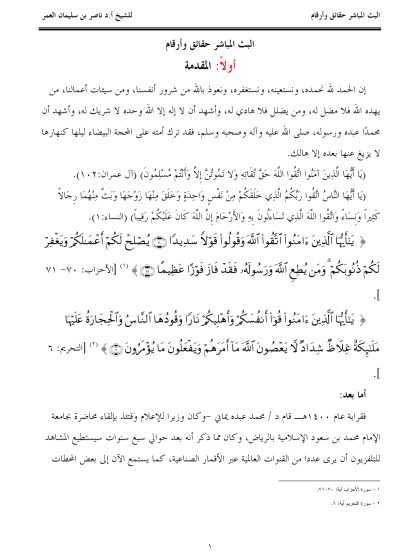 البث المباشر حقائق وأرقام
للشيخ أ.د ناصر بن سليمان العمر
البث المباشر حقائق وأرقام
أولاً: المقدمة
إن الحمد لله نحمده، ونستعينه، ونستغفره، ونعوذ بالله من شرور أنفسنا، ومن سيئات أعمالنا، من
يهده الله فلا مضل له، ومن يضلل فلا هادي له، وأشهد أن لا إله إلا الله وحده لا شريك له، وأشهد أن
محمدًا عبده ورسوله، صلى الله عليه وآله وصحبه وسلم، فقد ترك أمته على المحجة البيضاء ليلها كنهارها
لا يزيغ عنها بعده إلا هالك.
(يَا أَيُّهَا الَّذِينَ آمَنُوا اتَّقُوا اللَّهَ حَقَّ تُقَاتِهِ وَلا تَمُوتُنَّ إِلاَّ وَأَنْتُمْ مُسْلِمُونَ) (آل عمران:١٠٢).
(يَا أَيُّهَا النَّاسُ اتَّقُوا رَبَّكُمُ الَّذِي خَلَقَكُمْ مِنْ نَفْسٍ وَاحِدَةٍ وَخَلَقَ مِنْهَا زَوْجَهَا وَبَثَّ مِنْهُمَا رِجَالاً
كَثِيراً وَنِسَاءً وَاتَّقُوا اللَّهَ الَّذِي تَسَاءَلُونَ بِهِ وَالْأَرْحَامَ إِنَّ اللَّهَ كَانَ عَلَيْكُمْ رَقِيباً) (النساء:١).
﴿ يَٰٓأَيُّهَا ٱلَّذِينَ ءَامَنُوا۟ ٱتَّقُوا۟ ٱللَّهَ وَقُولُوا۟ قَوْلًا سَدِيدًا ۝ يُصْلِحْ لَكُمْ أَعْمَٰلَكُمْ وَيَغْفِرْ
لَكُمْ ذُنُوبَكُمْ ۗ وَمَن يُطِعِ ٱللَّهَ وَرَسُولَهُۥ فَقَدْ فَازَ فَوْزًا عَظِيمًا ۝ ﴾ (١) [الأحزاب: ٧٠- ٧١
].
﴿ يَٰٓأَيُّهَا ٱلَّذِينَ ءَامَنُوا۟ قُوٓا۟ أَنفُسَكُمْ وَأَهْلِيكُمْ نَارًا وَقُودُهَا ٱلنَّاسُ وَٱلْحِجَارَةُ عَلَيْهَا
مَلَٰٓئِكَةٌ غِلَاظٌ شِدَادٌ لَّا يَعْصُونَ ٱللَّهَ مَآ أَمَرَهُمْ وَيَفْعَلُونَ مَا يُؤْمَرُونَ ۝ ﴾ (٢) [التحريم: ٦
].
أما بعد:
فقرابة عام ١٤٠٠هـ قام د / محمد عبده يماني -وكان وزيرا للإعلام وقتئذ بإلقاء محاضرة بجامعة
الإمام محمد بن سعود الإسلامية بالرياض، وكان مما ذكر أنه بعد حوالي سبع سنوات سيستطيع المشاهد
للتلفزيون أن يرى عددا من القنوات العالمية عبر الأقمار الصناعية، كما يستمع الآن إلى بعض المحطات
١ - سورة الأحزاب آية: ٧٠-٧١.
٢ - سورة التحريم آية: ٦.
١